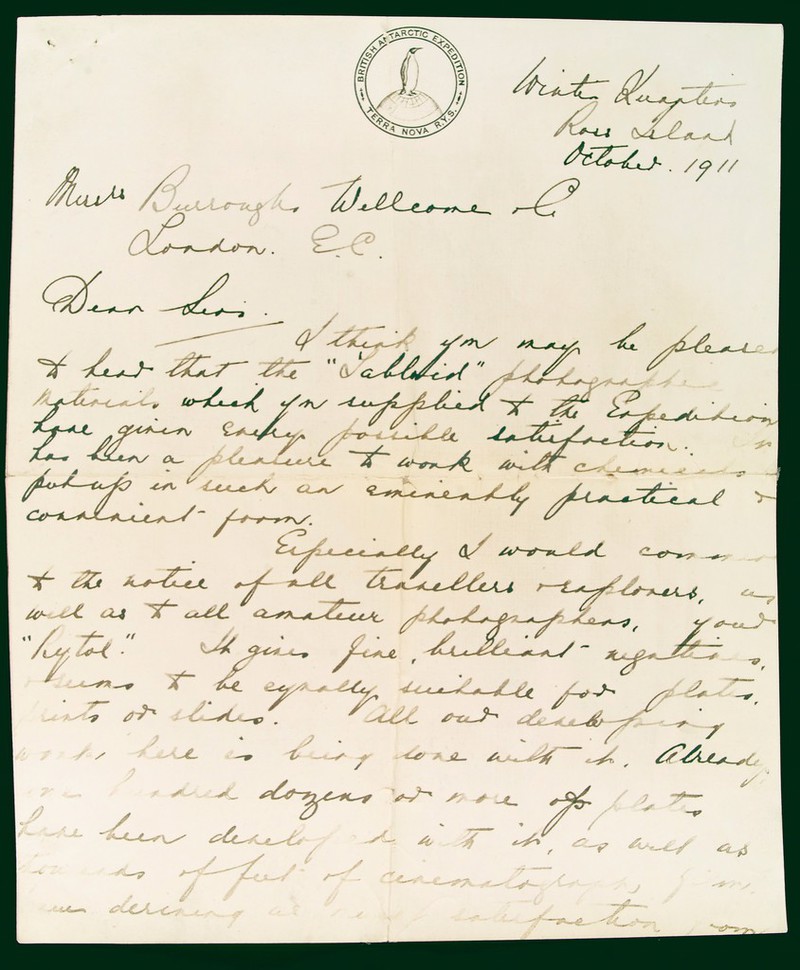 BRITISH ANTARCTIC EXPEDITION
TERRA NOVA R.Y.S.
Winter Quarters
Ross Island
October. 1911
Messrs Burroughs Wellcome & Co
London. E.C.
Dear Sirs.
I think you may be pleased
to hear that the "Tabloid" photographic
materials which you supplied to the Expedition
have given every possible satisfaction. It
has been a pleasure to work with chemicals
put up in such an eminently practical &
convenient form.
Especially I would commend
to the notice of all travellers & explorers, as
well as to all amateur photographers, your
"Rytol". It gives fine, brilliant negatives,
& seems to be equally suitable for plates,
prints or slides. All our developing
work here is being done with it. Already
one hundred dozens or more of plates
have been developed with it, as well as
thousands of feet of cinematograph film.
satisfaction from